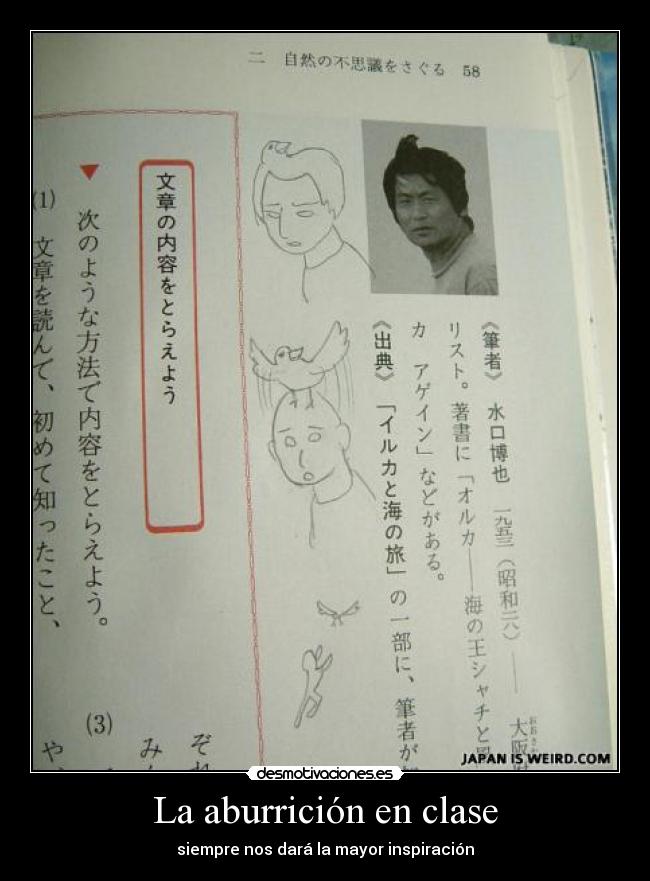 二 自然の不思議をさぐる 58
《筆者》 水口博也 一九五三(昭和二八)――
大阪
おおさか
リスト。著書に「オルカ――海の王シャチと
カ アゲイン」などがある。
《出典》 「イルカと海の旅」の一部に、筆者が
文章の内容をとらえよう
▼ 次のような方法で内容をとらえよう。
(1) 文章を読んで、初めて知ったこと、
(3)
ぞれ
み
や
JAPAN IS WEIRD.COM
desmotivaciones.es
La aburrición en clase
siempre nos dará la mayor inspiración